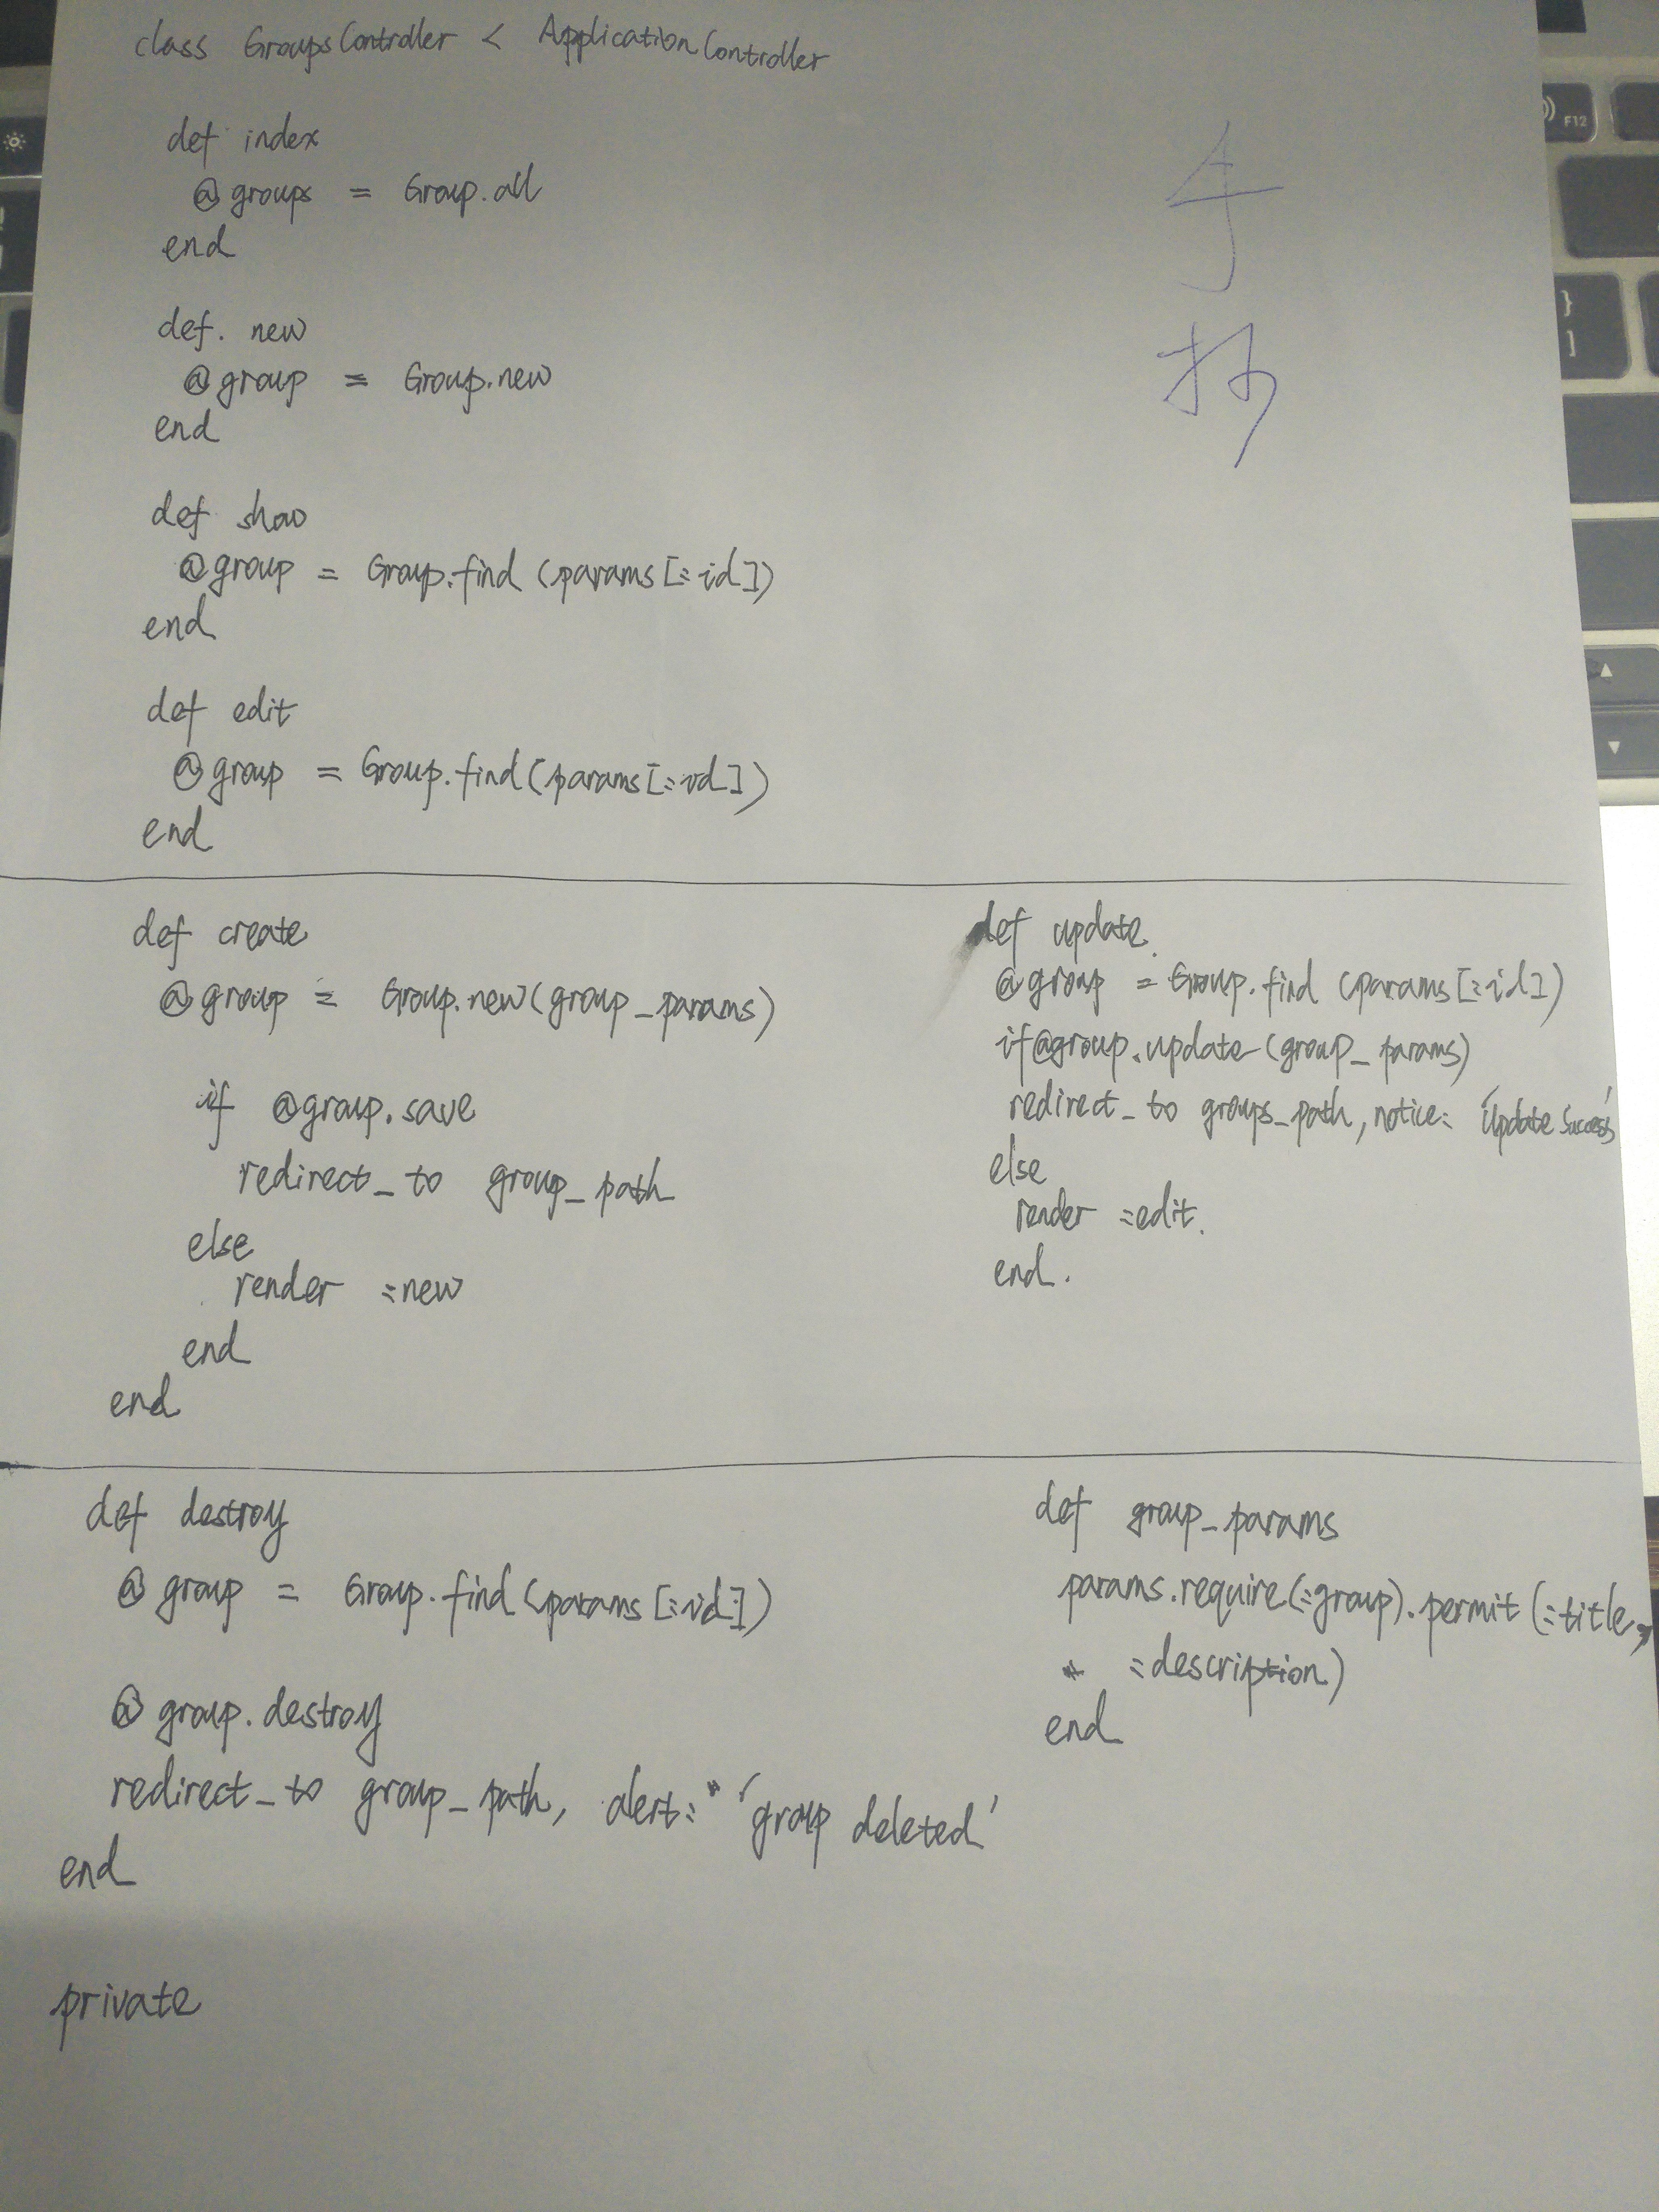 class GroupsController < ApplicationController
def index
@groups = Group.all
end
def. new
@group = Group.new
end
def show
@group = Group.find (params[:id])
end
def edit
@group = Group.find(params[:id])
end
手
抄
def create
@group = Group.new(group_params)
if @group.save
redirect_to group_path
else
render :new
end
end
def update.
@group = Group.find (params[:id])
if@group.update(group_params)
redirect_to groups_path, notice: 'Update Success'
else
render :edit.
end.
def destroy
@group = Group.find(params[:id])
@group.destroy
redirect_to group_path, alert: 'group deleted'
end
private
def group_params
params.require(:group).permit(:title,
:description)
end
F12
}
]